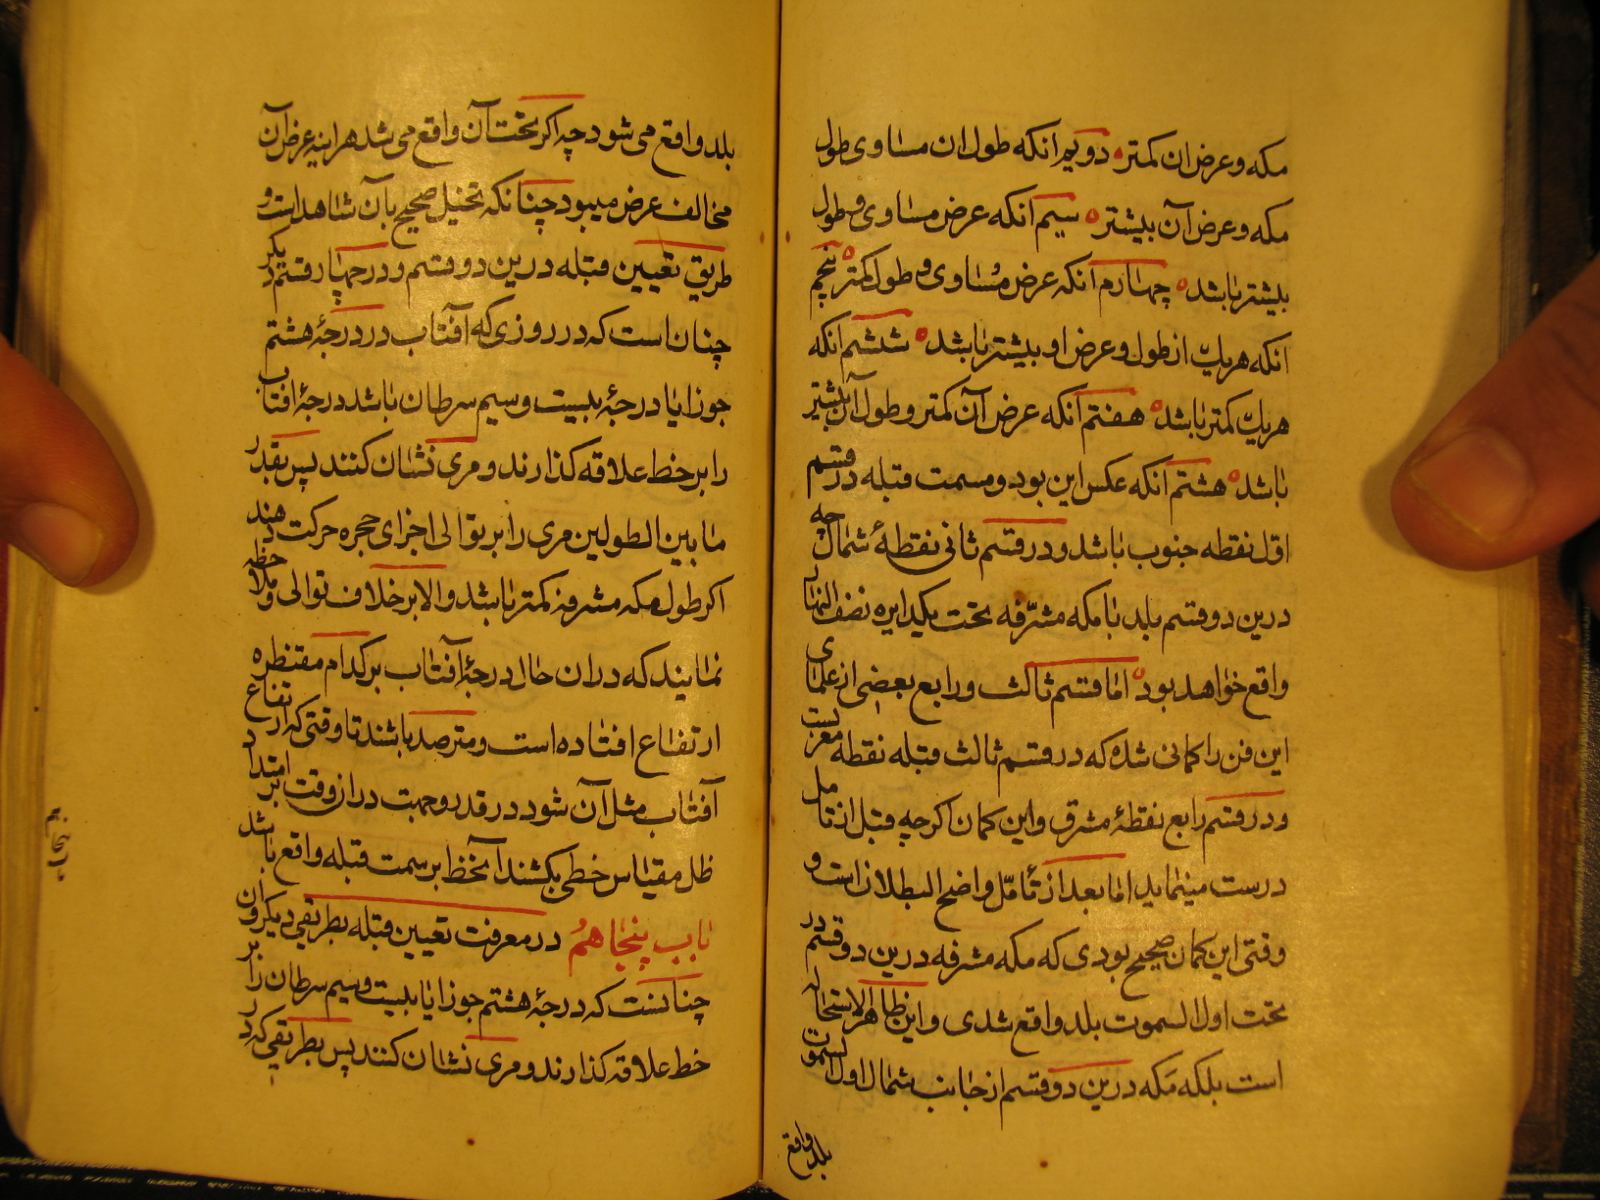 مکه و عرض ان کمتر دویم انکه طول ان مساوی طول
مکه و عرض آن بیشتر سیم انکه عرض مساوی و طول
بیشتر باشد چهارم انکه عرض مساوی و طول کمتر پنجم
انکه هر یک از طول و عرض او بیشتر باشد ششم انکه
هر یک کمتر باشد هفتم انکه عرض آن کمتر و طول آن بیشتر
باشد هشتم انکه عکس این بود و سمت قبله در قسم
اول نقطه جنوب باشد و در قسم ثانی نقطهٔ شمال چه
درین دو قسم بلد با مکه مشرّفه تحت یکدایره نصف النهار
واقع خواهد بود اما قسم ثالث و رابع بعضی از علمای
این فن را کمانی شده که در قسم ثالث قبله نقطه مغربست
و در قسم رابع نقطهٔ مشرق و این کمان کرچه قبل از تامل
درست مینماید اما بعد از تأمّل واضح البطلان است و
وقتی این کمان صحیح بودی که مکه مشرفه درین دو قسم در
تحت اول السموت بلد واقع شدی و این ظاهر الاستحاله
است بلکه مکه درین دو قسم از جانب شمال اول السموت
بلد واقع
بلد واقع می شود چه اکر تحت آن واقع می شد هراینه عرض آن
مخالف عرض میبود چنانکه تخیل صحیح بآن شاهد است و
طریق تعیین قبله درین دو قسم و در چهار قسم دیکر
چنان است که در روزی که آفتاب در درجهٔ هشتم
جوزا یا درجهٔ بیست و سیم سرطان باشد درجهٔ افتاب
را بر خط علاقه کذارند و مری نشان کنند پس بقدر
ما بین الطولین مری را بر توالی اجزای حجره حرکت دهند
اکر طول مکه مشرفه کمتر باشد والا بر خلاف توالی و ملاحظه
نمایند که در ان حال درجهٔ آفتاب بر کدام مقنطره
ارتفاع افتاده است و مترصد باشند تا وقتی که ارتفاع
آفتاب مثل آن شود در قدر و جهت در ان وقت بر امتداد
ظل مقیاس خطی بکشند آنخط بر سمت قبله واقع باشد
باب پنجاهم در معرفت تعیین قبله بطریقی دیکر و آن
چنانست که درجهٔ هشتم جوزا یا بیست و سیم سرطان را بر
خط علاقه کذارند و مری نشان کنند پس بطریقی که در
باب پنجاه